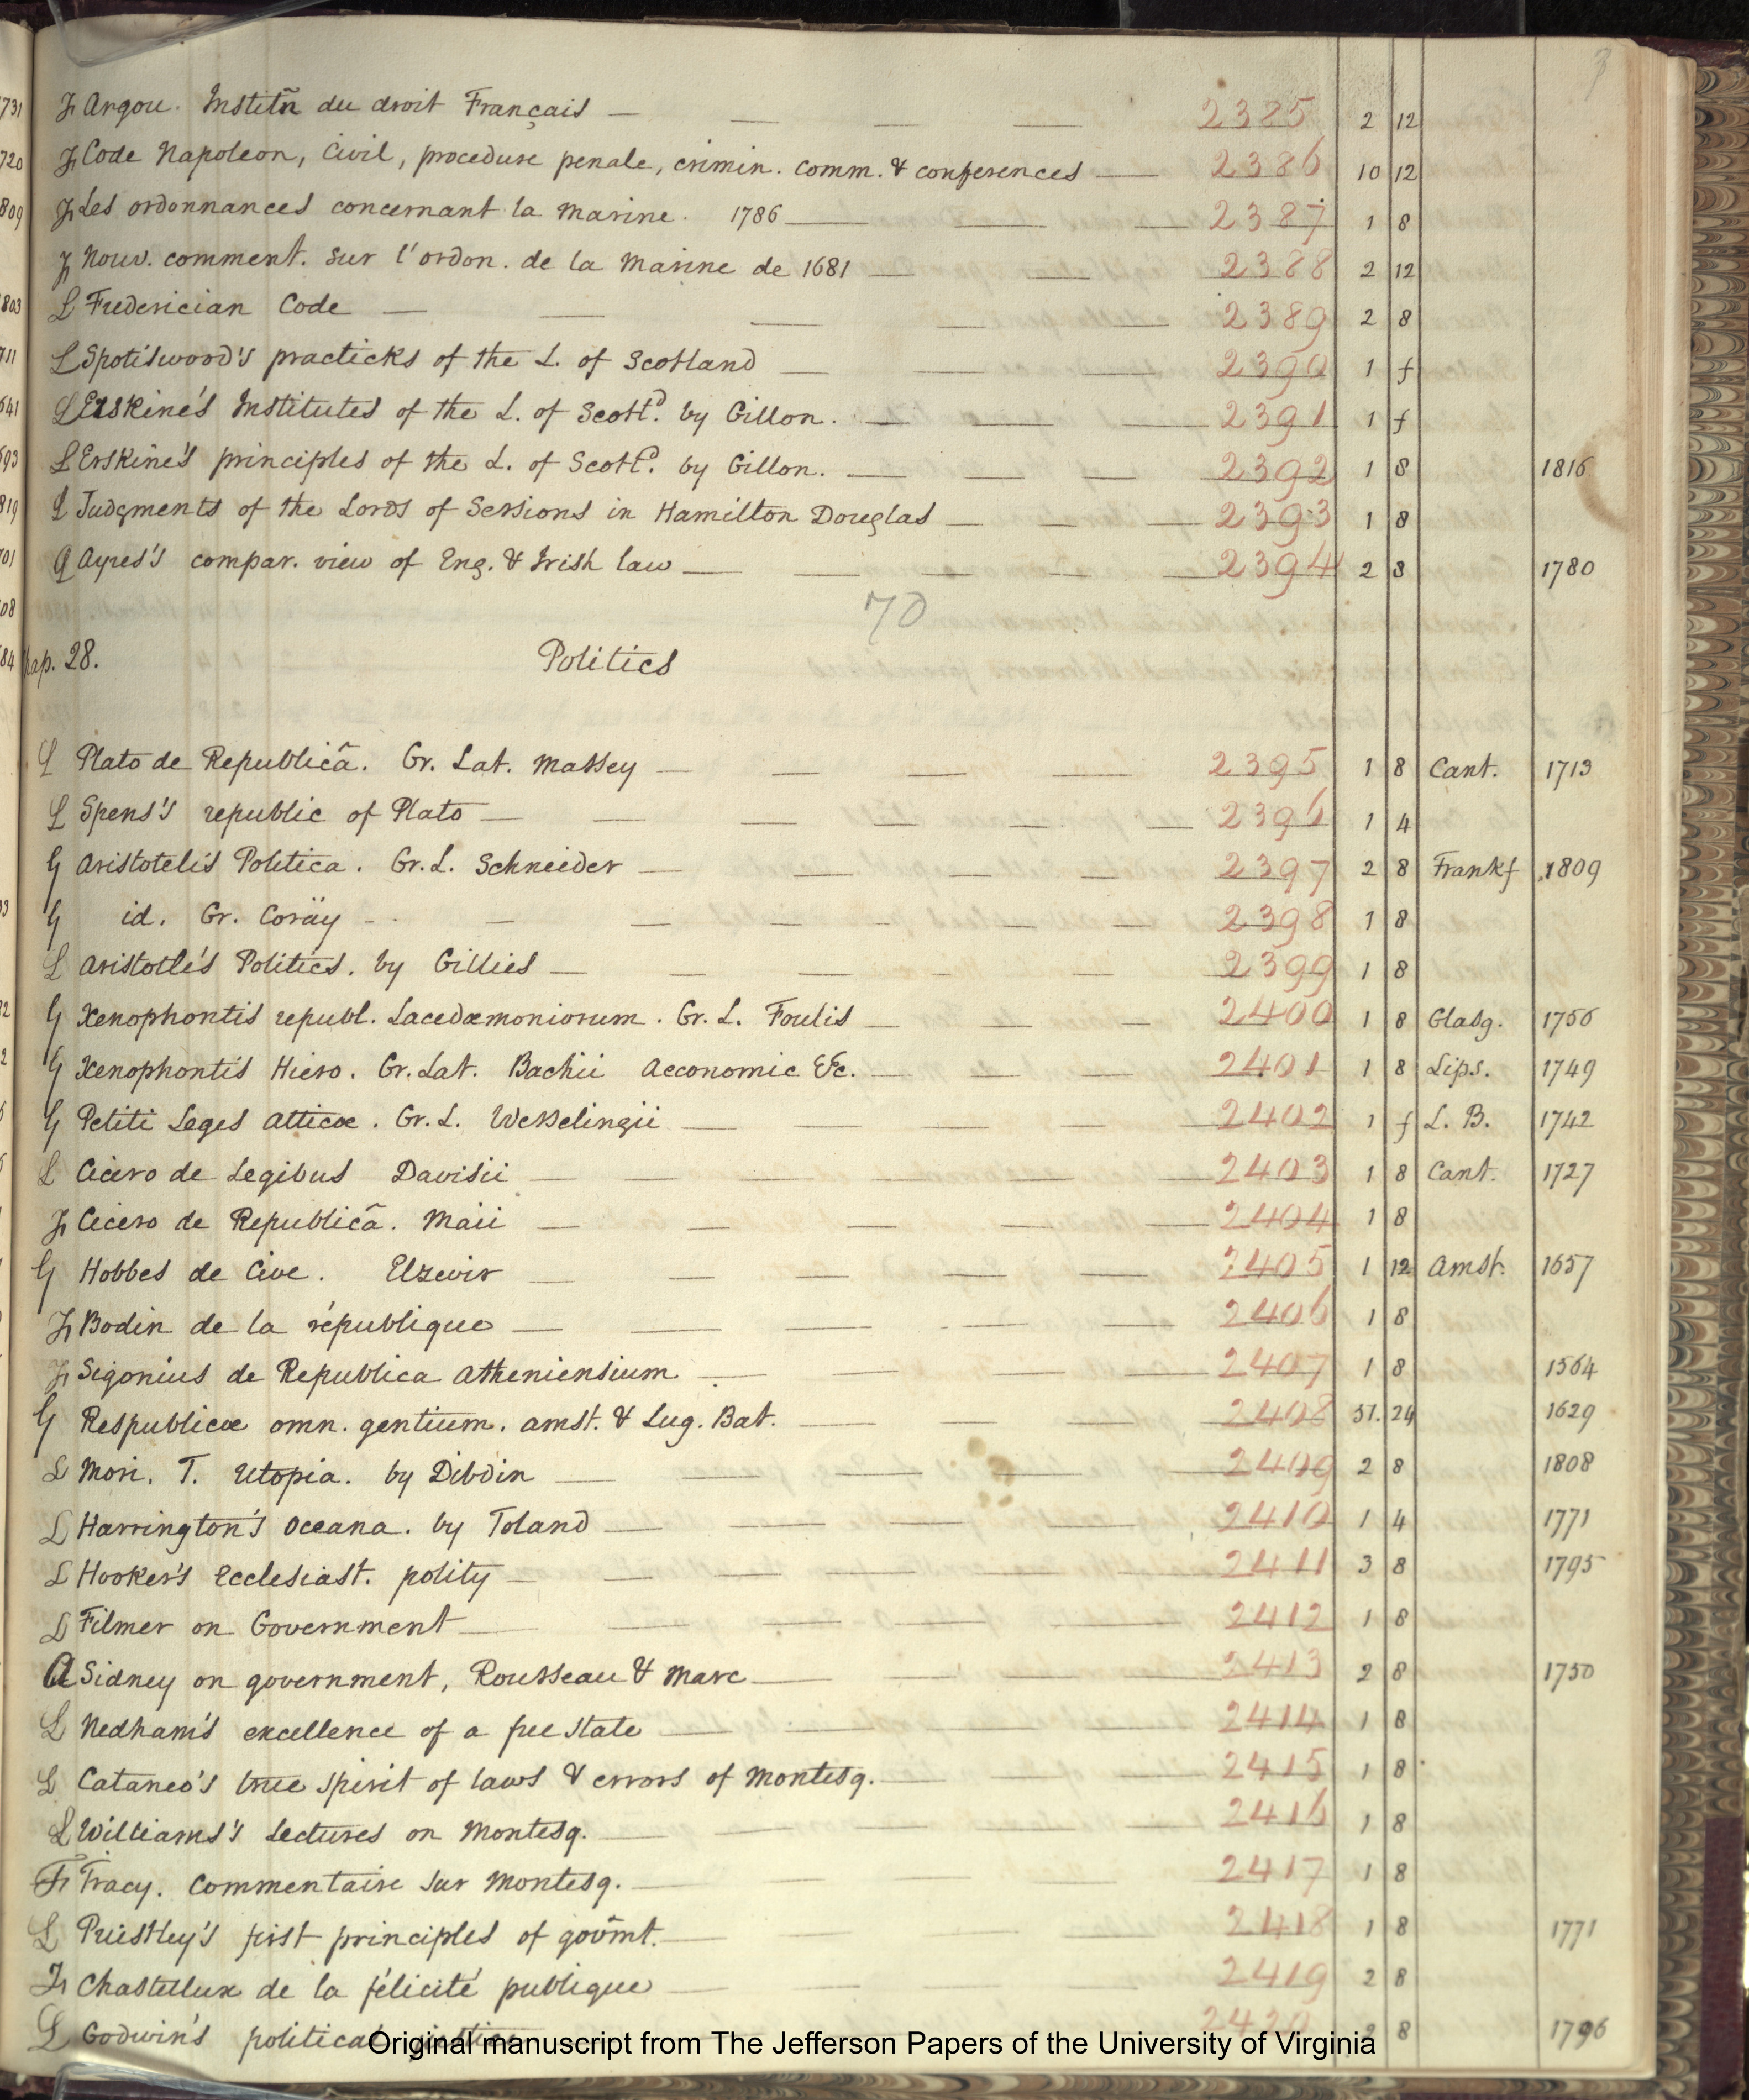 731 Fr Argou. Institñ du droit Français — 2385 2 12
720 Fr Code Napoleon, Civil, procedure penale, crimin. comm. & conferences — 2386 10 12
809 Fr Les ordonnances concernant la Marine. 1786 — 2387 1 8
Fr Nouv. comment. sur l'ordon. de la Marine de 1681 — 2388 2 12
803 L Frederician Code — 2389 2 8
711 L Spotiswood's practicks of the L. of Scotland — 2390 1 f
641 L Erskine's Institutes of the L. of Scotld. by Gillon. — 2391 1 f
693 L Erskine's principles of the L. of Scotld. by Gillon. — 2392 1 8 1816
819 L Judgments of the Lords of Sessions in Hamilton Douglas — 2393 1 8
701 Ayres's compar. view of Eng. & Irish law — 2394 2 8 1780
08 70
84 hap. 28. Politics
L Plato de Republicâ. Gr. Lat. Massey — 2395 1 8 Cant. 1713
L Spens's republic of Plato — 2396 1 4
G Aristotelis Politica. Gr. L. Schneider — 2397 2 8 Frankf 1809
G id. Gr. Coräy — 2398 1 8
L Aristotle's Politics. by Gillies — 2399 1 8
G Xenophontis republ. Lacedæmoniorum. Gr. L. Foulis — 2400 1 8 Glasg. 1756
G Xenophontis Hiero. Gr. Lat. Bachii Aeconomic &c. — 2401 1 8 Lips. 1749
G Petiti Leges Atticæ. Gr. L. Wesselingii — 2402 1 f L. B. 1742
L Cicero de Legibus Davisii — 2403 1 8 Cant. 1727
Fr Cicero de Republicâ. Maii — 2404 1 8
G Hobbes de Cive. Elzevir — 2405 1 12 Amst. 1657
Fr Bodin de la république — 2406 1 8
Fr Sigonius de Republica Atheniensium — 2407 1 8 1564
G Respublicæ omn. gentium. Amst. & Lug. Bat. — 2408 51. 24 1629
L Mori. T. Utopia. by Dibdin — 2409 2 8 1808
L Harrington's Oceana. by Toland — 2410 1 4 1771
L Hooker's Ecclesiast. polity — 2411 3 8 1795
L Filmer on Government — 2412 1 8
Sidney on government, Rousseau & Marc — 2413 2 8 1750
L Nedham's excellence of a free state — 2414 1 8
L Cataneo's true spirit of laws & errors of Montesq. — 2415 1 8
L Williams's Lectures on Montesq. — 2416 1 8
Fr Tracy. Commentaire sur Montesq. — 2417 1 8
L Priestley's first principles of govm̃t. — 2418 1 8 1771
Fr Chastellux de la félicité publique — 2419 2 8
L Godwin's political justice 2420 2 8 1796
Original manuscript from The Jefferson Papers of the University of Virginia